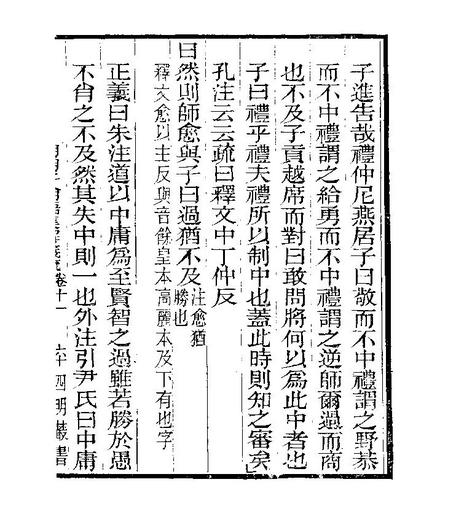 子進告哉禮仲尼燕居子曰敬而不中禮謂之野恭
而不中禮謂之給勇而不中禮謂之逆師爾過而商
也不及子貢越席而對曰敢問將何以爲此中者也
子曰禮乎禮夫禮所以制中也蓋此時則知之審矣」
孔注云云疏曰釋文中丁仲反
曰然則師愈與子曰過猶不及注愈猶
勝也
釋文愈以主反與音餘皇本高麗本及下有也字
正義曰朱注道以中庸爲至賢智之過雖若勝於愚
不肖之不及然其失中則一也外注引尹氏曰中庸
卷十一 四明叢書